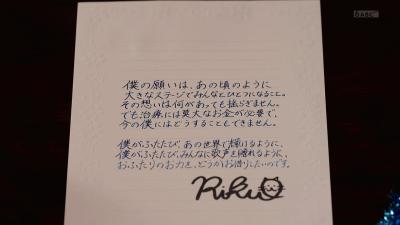 ⓑABC
僕の願いは、あの頃のように
大きなステージでみんなとひとつになること。
その想いは何があっても揺らぎません。
でも治療には莫大なお金が必要で、
今の僕にはどうすることもできません。
僕がふたたび、あの世界で輝けるように、
僕がふたたび、みんなに歌声を贈れるように、
おふたりのお力を、どうかお借りしたいのです。
Riku